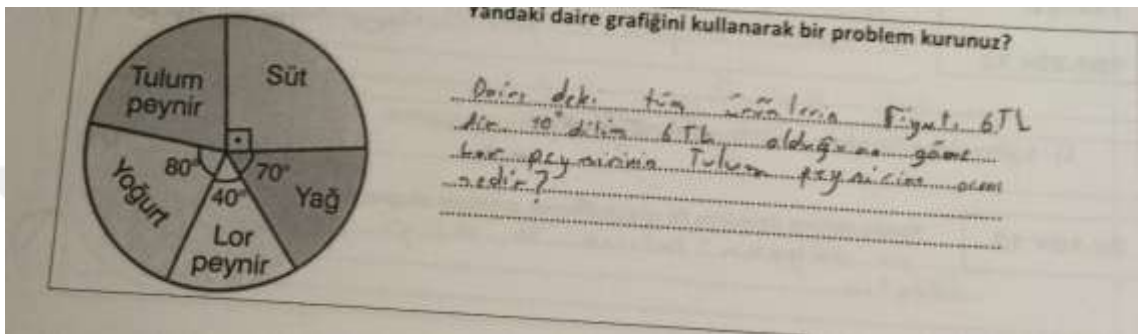 Yandaki daire grafiğini kullanarak bir problem kurunuz?
Tulum
peynir
Süt
80°
70°
40°
Yoğurt
Yağ
Lor
peynir
Daire deki tüm ürünlerin Fiyatı 6TL
dilim 6 TL olduğuna göre
Lor peynirinin Tulum peynirine oranı
nedir?